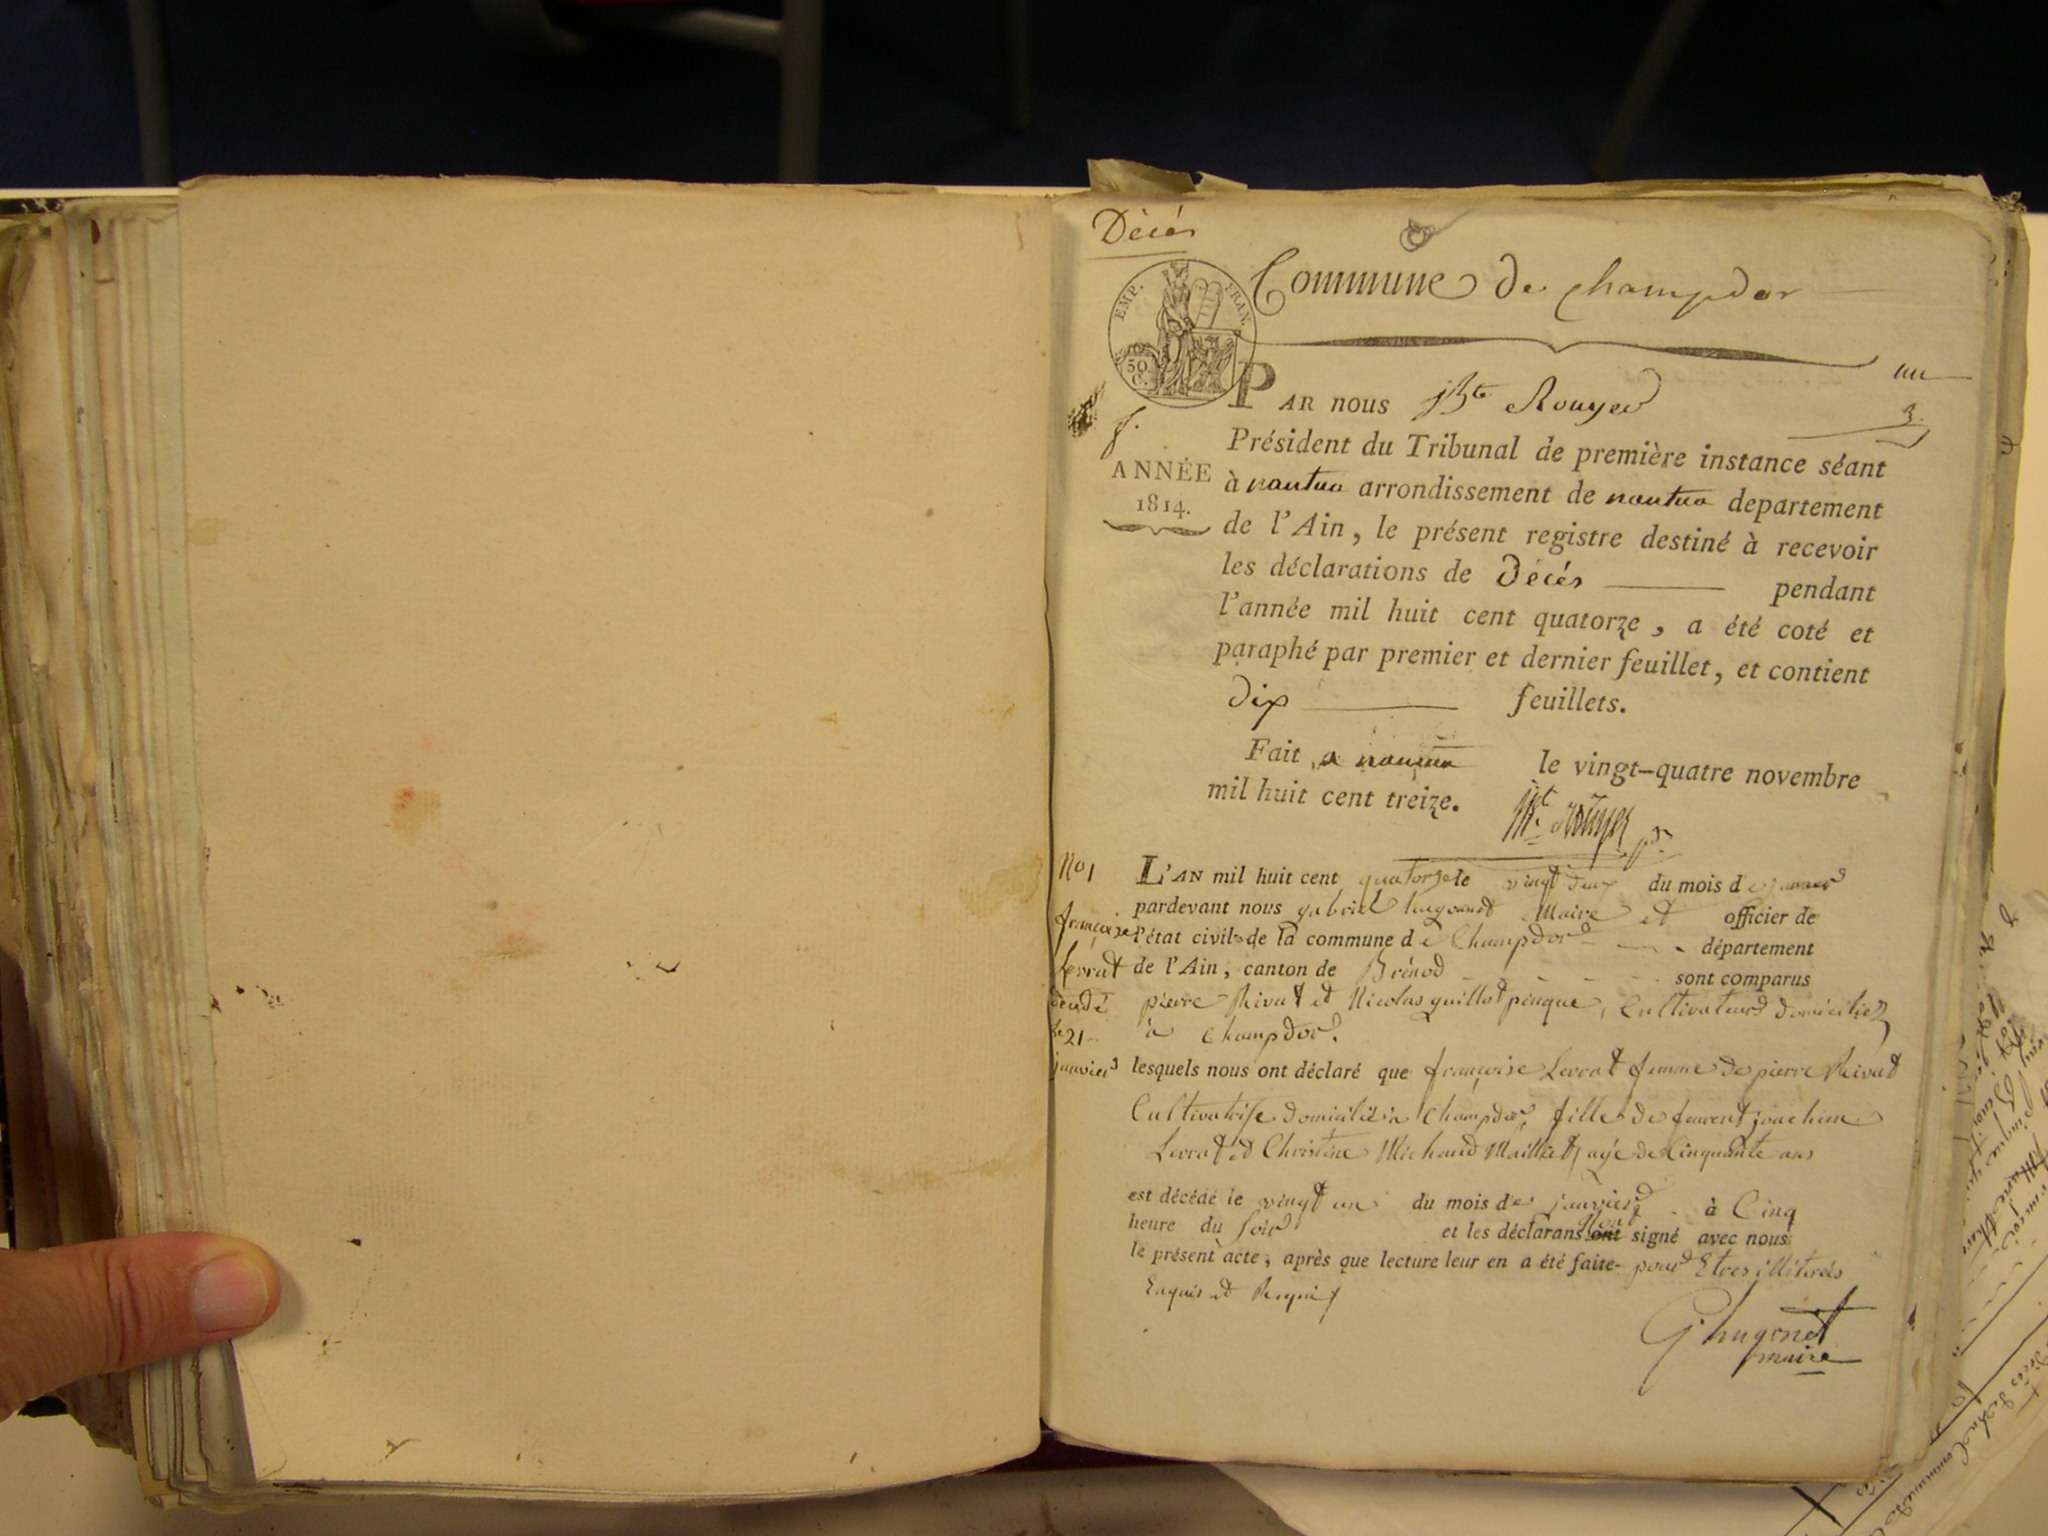 Décés
Commune de Champdor
EMP. FRAN.
50
C.
un
PAR nous JBte Rouyer
3.
f.
Président du Tribunal de première instance séant
ANNÉE
1814.
à nantua arrondissement de nantua departement
de l'Ain, le présent registre destiné à recevoir
les déclarations de Décés pendant
l'année mil huit cent quatorze, a été coté et
paraphé par premier et dernier feuillet, et contient
dix feuillets.
Fait a nantua le vingt-quatre novembre
mil huit cent treize.
Rouyer
No 1
françoise
Levrat
le 21
janvier
L'AN mil huit cent quatorze le vingt deux du mois de janvier
pardevant nous gabriel hugonnet Maire et officier de
l'état civil de la commune de Champdor département
de l'Ain, canton de Brénod sont comparus
pierre Rivat et Nicolas guillot pinque, Cultivateurs domiciliés
à Champdor.
lesquels nous ont déclaré que françoise Levrat femme de pierre Rivat
Cultivatrise domicilié à Champdor, fille de joachim
Levrat et Christine Michaud Maillet, agé de Cinquante ans
est décédé le vingt un du mois de janvier à Cinq
heure du soir et les déclarans ont non signé avec nous
le présent acte, après que lecture leur en a été faite pour Etres illiterés
Enquis et Requis
G. hugonet
maire